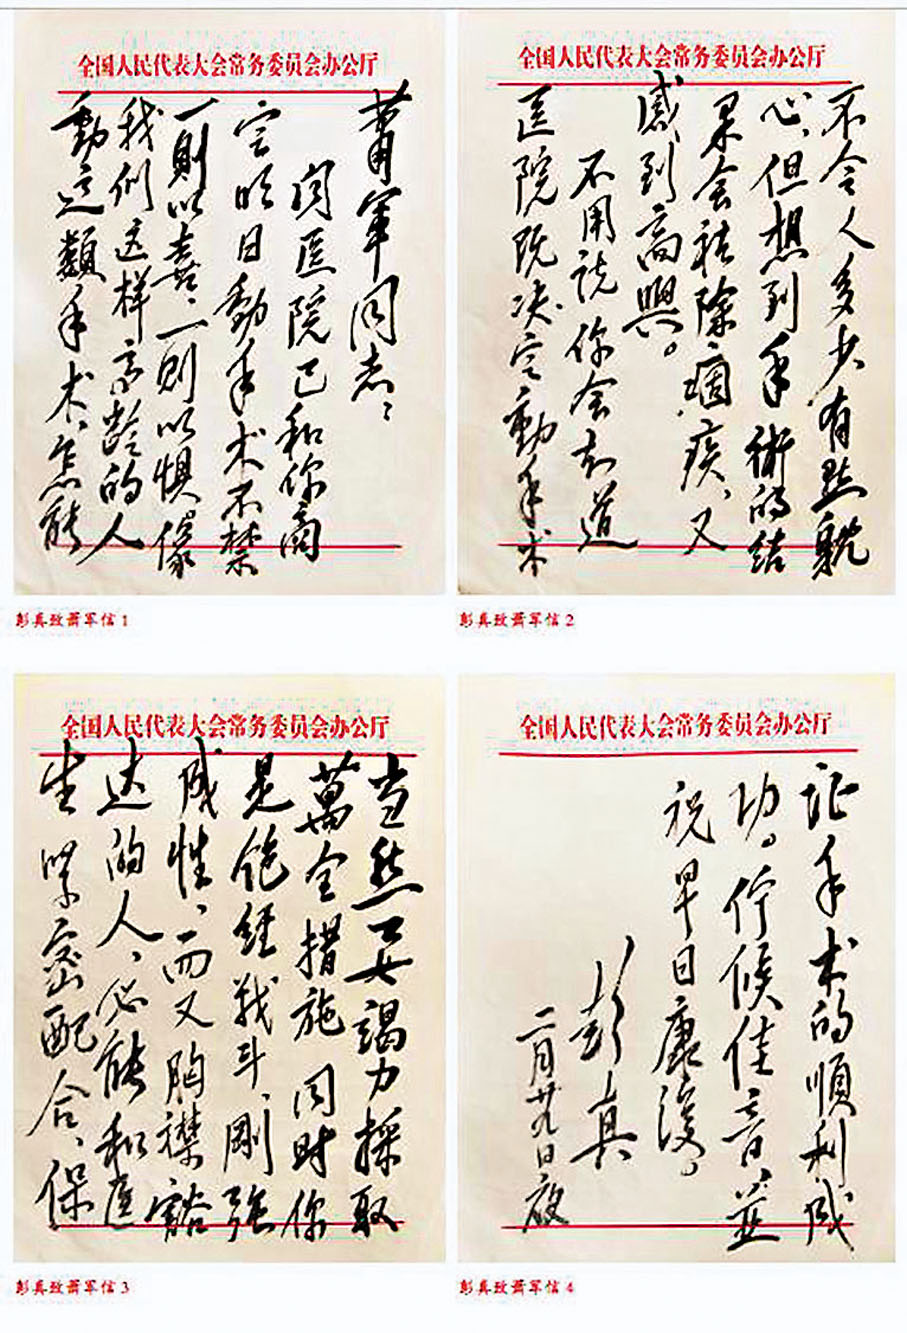 全国人民代表大会常务委员会办公厅
蕭軍同志：
闻医院已和你商
定明日動手术不禁
一則以喜、一則以惧、像
我们这样高龄的人
動這類手术、怎能
彭真致萧军信 1
全国人民代表大会常务委员会办公厅
不令人多少有點躭
心、但想到手術的结
果会祛除痼疾、又
感到高興。
不用说你会知道
医院既决定動手术
彭真致萧军信 2
全国人民代表大会常务委员会办公厅
当然要竭力採取
萬全措施 同时你
是饱经战斗、剛强
成性、而又胸襟豁
达的人、必能和医
生紧密配合、保
彭真致萧军信 3
全国人民代表大会常务委员会办公厅
证手术的順利成
功。佇候佳音、並
祝早日康復。
彭真
二月廿九日夜
彭真致萧军信 4